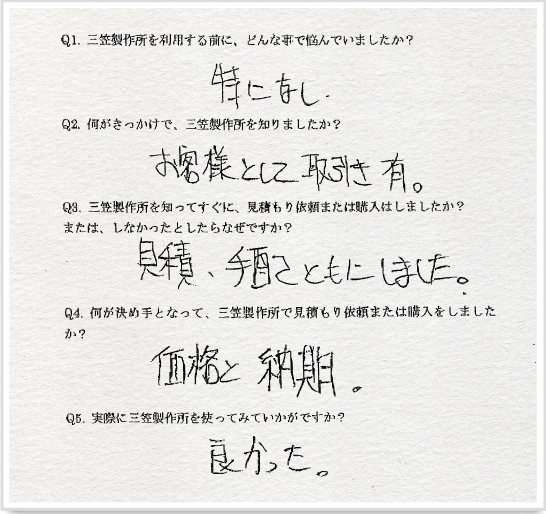 Q1. 三笠製作所を利用する前に、どんな事で悩んでいましたか?
特になし.
Q2. 何がきっかけで、三笠製作所を知りましたか?
お客様として取引き有。
Q3. 三笠製作所を知ってすぐに、見積もり依頼または購入はしましたか?
または、しなかったとしたらなぜですか?
見積、手配ともにしました。
Q4. 何が決め手となって、三笠製作所で見積もり依頼または購入をしました
か?
価格と納期。
Q5. 実際に三笠製作所を使ってみていかがですか?
良かった。